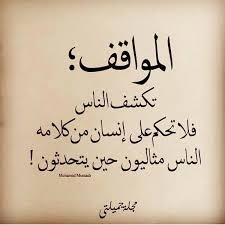 المواقف؛
تكشف الناس
فلا تحكم على إنسان من كلامه
الناس مثاليون حين يتحدثون !
Mohamad Mostadi
مجلة جميلتي